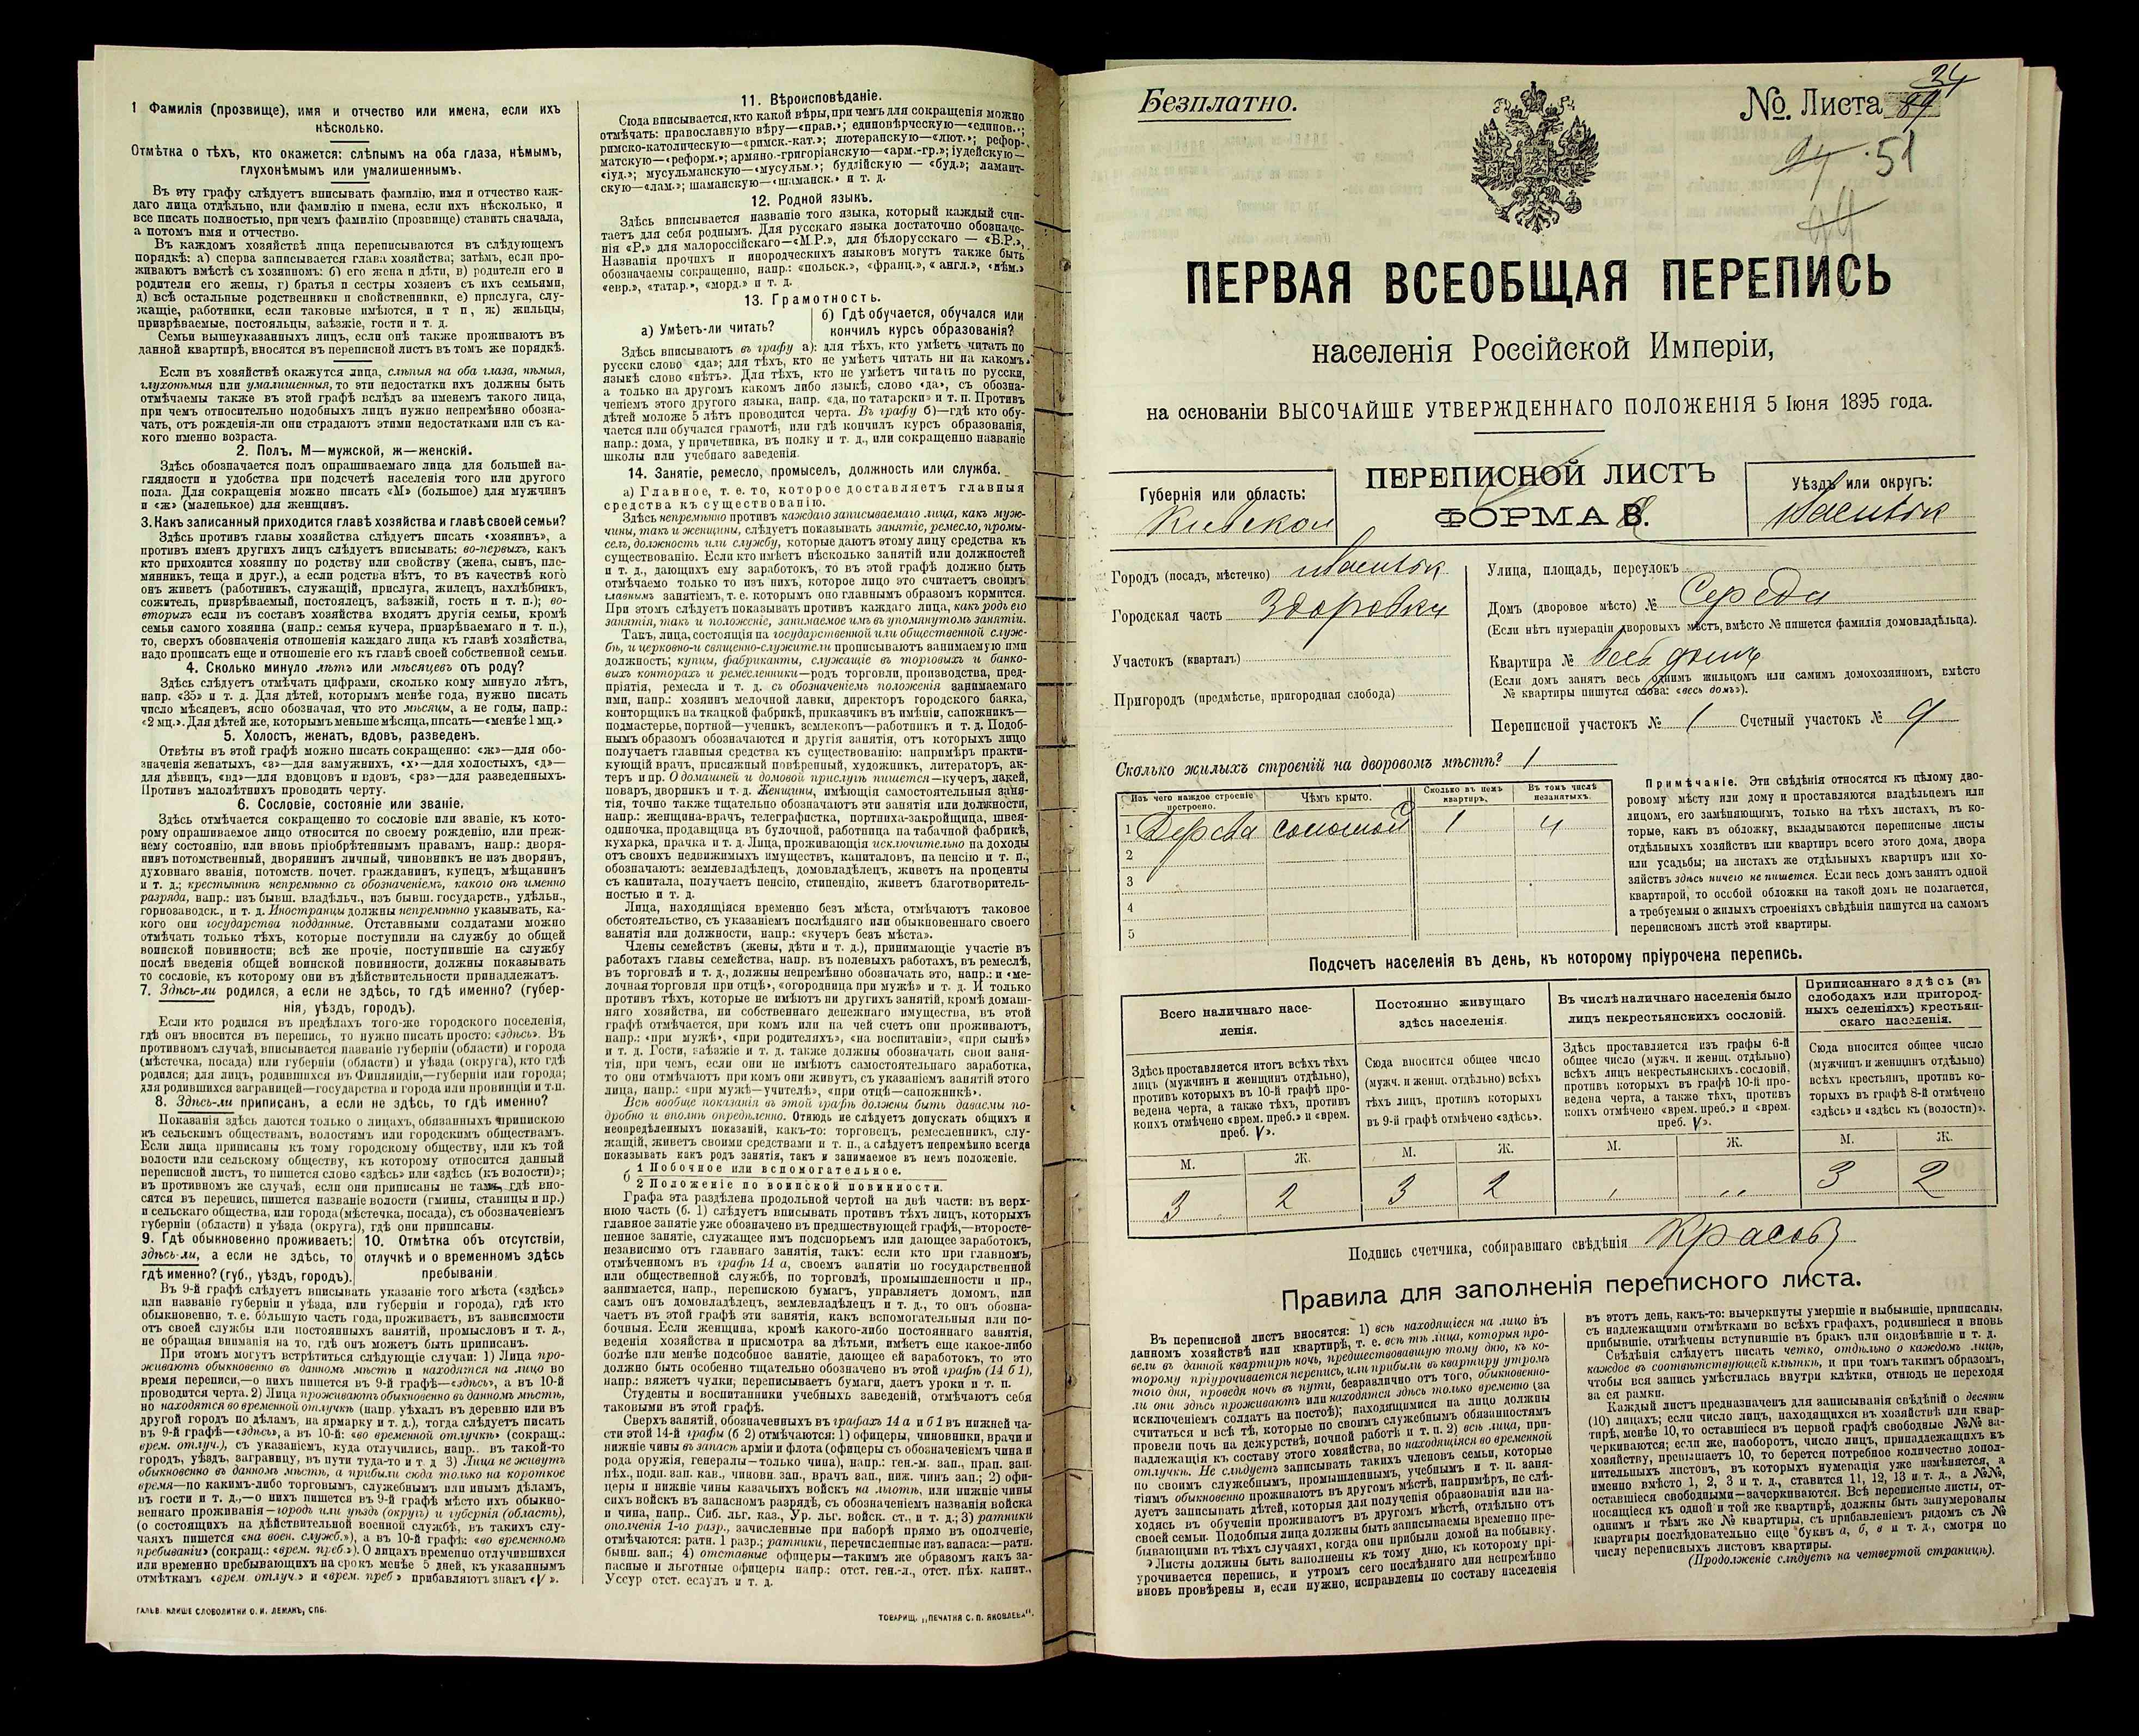 1 Фамилія (прозвище), имя и отчество или имена, если ихъ
нѣсколько.
Отмѣтка о тѣхъ, кто окажется: слѣпымъ на оба глаза, нѣмымъ,
глухонѣмымъ или умалишеннымъ.
Въ эту графу слѣдуетъ вписывать фамилію, имя и отчество каж-
даго лица отдѣльно, или фамилію и имена, если ихъ нѣсколько, и
все писать полностью, при чемъ фамилію (прозвище) ставить сначала,
а потомъ имя и отчество.
Въ каждомъ хозяйствѣ лица переписываются въ слѣдующемъ
порядкѣ: а) сперва записывается глава хозяйства; затѣмъ, если про-
живаютъ вмѣстѣ съ хозяиномъ: б) его жена и дѣти, в) родители его и
родители его жены, г) братья и сестры хозяевъ съ ихъ семьями,
д) всѣ остальные родственники и свойственники, е) прислуга, слу-
жащіе, работники, если таковые имѣются, и т п, ж) жильцы,
призрѣваемые, постояльцы, заѣзжіе, гости и т. д.
Семьи вышеуказанныхъ лицъ, если онѣ также проживаютъ въ
данной квартирѣ, вносятся въ переписной листъ въ томъ же порядкѣ.
Если въ хозяйствѣ окажутся лица, слѣпыя на оба глаза, нѣмыя,
глухонѣмыя или умалишенныя, то эти недостатки ихъ должны быть
отмѣчаемы также въ этой графѣ вслѣдъ за именемъ такого лица,
при чемъ относительно подобныхъ лицъ нужно непремѣнно обозна-
чать, отъ рожденія-ли они страдаютъ этими недостатками или съ ка-
кого именно возраста.
2. Полъ. М—мужской, ж—женскій.
Здѣсь обозначается полъ опрашиваемаго лица для большей на-
глядности и удобства при подсчетѣ населенія того или другого
пола. Для сокращенія можно писать «М» (большое) для мужчинъ
и «ж» (маленькое) для женщинъ.
3. Какъ записанный приходится главѣ хозяйства и главѣ своей семьи?
Здѣсь противъ главы хозяйства слѣдуетъ писать «хозяинъ», а
противъ именъ другихъ лицъ слѣдуетъ вписывать: во-первыхъ, какъ
кто приходится хозяину по родству или свойству (жена, сынъ, пле-
мянникъ, теща и друг.), а если родства нѣтъ, то въ качествѣ кого
онъ живетъ (работникъ, служащій, прислуга, жилецъ, нахлѣбникъ,
сожитель, призрѣваемый, постоялецъ, заѣзжій, гость и т. п.); во-
вторыхъ если въ составъ хозяйства входятъ другія семьи, кромѣ
семьи самого хозяина (напр.: семья кучера, призрѣваемаго и т. п.),
то, сверхъ обозначенія отношенія каждаго лица къ главѣ хозяйства,
надо прописать еще и отношеніе его къ главѣ своей собственной семьи.
4. Сколько минуло лѣтъ или мѣсяцевъ отъ роду?
Здѣсь слѣдуетъ отмѣчать цифрами, сколько кому минуло лѣтъ,
напр. «35» и т. д. Для дѣтей, которымъ менѣе года, нужно писать
число мѣсяцевъ, ясно обозначая, что это мѣсяцы, а не годы, напр.:
«2 мц.». Для дѣтей же, которымъ меньше мѣсяца, писать—«менѣе 1 мц.»
5. Холостъ, женатъ, вдовъ, разведенъ.
Отвѣты въ этой графѣ можно писать сокращенно: «ж»—для обо-
значенія женатыхъ, «з»—для замужнихъ, «х»—для холостыхъ, «д»—
для дѣвицъ, «вд»—для вдовцовъ и вдовъ, «рз»—для разведенныхъ.
Противъ малолѣтнихъ проводить черту.
6. Сословіе, состояніе или званіе.
Здѣсь отмѣчается сокращенно то сословіе или званіе, къ кото-
рому опрашиваемое лицо относится по своему рожденію, или преж-
нему состоянію, или вновь пріобрѣтеннымъ правамъ, напр.: дворя-
нинъ потомственный, дворянинъ личный, чиновникъ не изъ дворянъ,
духовнаго званія, потомств. почет. гражданинъ, купецъ, мѣщанинъ
и т. д.; крестьянинъ непремѣнно съ обозначеніемъ, какого онъ именно
разряда, напр.: изъ бывш. владѣльч., изъ бывш. государств., удѣльн.,
горнозаводск., и т. д. Иностранцы должны непремѣнно указывать, ка-
кого они государства подданные. Отставными солдатами можно
отмѣчать только тѣхъ, которые поступили на службу до общей
воинской повинности; всѣ же прочіе, поступившіе на службу
послѣ введенія общей воинской повинности, должны показывать
то сословіе, къ которому они въ дѣйствительности принадлежатъ.
7. Здѣсь-ли родился, а если не здѣсь, то гдѣ именно? (губер-
нія, уѣздъ, городъ).
Если кто родился въ предѣлахъ того-же городского поселенія,
гдѣ онъ вносится въ перепись, то нужно писать просто: «здѣсь». Въ
противномъ случаѣ, вписывается названіе губерніи (области) и города
(мѣстечка, посада) или губерніи (области) и уѣзда (округа), кто гдѣ
родился; для лицъ, родившихся въ Финляндіи,—губерніи или города;
для родившихся заграницей—государства и города или провинціи и т.п.
8. Здѣсь-ли приписанъ, а если не здѣсь, то гдѣ именно?
Показанія здѣсь даются только о лицахъ, обязанныхъ припискою
къ сельскимъ обществамъ, волостямъ или городскимъ обществамъ.
Если лица приписаны къ тому городскому обществу, или къ той
волости или сельскому обществу, къ которому относится данный
переписной листъ, то пишется слово «здѣсь» или «здѣсь (къ волости)»;
въ противномъ же случаѣ, если они приписаны не тамъ, гдѣ вно-
сятся въ перепись, пишется названіе волости (гмины, станицы и пр.)
и сельскаго общества, или города (мѣстечка, посада), съ обозначеніемъ
губерніи (области) и уѣзда (округа), гдѣ они приписаны.
9. Гдѣ обыкновенно проживаетъ:
здѣсь-ли, а если не здѣсь, то
гдѣ именно? (губ., уѣздъ, городъ).
10. Отмѣтка объ отсутствіи,
отлучкѣ и о временномъ здѣсь
пребываніи.
Въ 9-й графѣ слѣдуетъ вписывать указаніе того мѣста («здѣсь»
или названіе губерніи и уѣзда, или губерніи и города), гдѣ кто
обыкновенно, т. е. бо́льшую часть года, проживаетъ, въ зависимости
отъ своей службы или постоянныхъ занятій, промысловъ и т. д.,
не обращая вниманія на то, гдѣ онъ можетъ быть приписанъ.
При этомъ могутъ встрѣтиться слѣдующіе случаи: 1) Лица про-
живаютъ обыкновенно въ данномъ мѣстѣ и находятся на лицо во
время переписи,—о нихъ пишется въ 9-й графѣ—«здѣсь», а въ 10-й
проводится черта. 2) Лица проживаютъ обыкновенно въ данномъ мѣстѣ,
но находятся во временной отлучкѣ (напр. уѣхалъ въ деревню или въ
другой городъ по дѣламъ, на ярмарку и т. д.), тогда слѣдуетъ писать
въ 9-й графѣ—«здѣсь», а въ 10-й: «во временной отлучкѣ» (сокращ.:
врем. отлуч.), съ указаніемъ, куда отлучились, напр.. въ такой-то
городъ, уѣздъ, заграницу, въ пути туда-то и т. д 3) Лица не живутъ
обыкновенно въ данномъ мѣстѣ, а прибыли сюда только на короткое
время—по какимъ-либо торговымъ, служебнымъ или инымъ дѣламъ,
въ гости и т. д.,—о нихъ пишется въ 9-й графѣ мѣсто ихъ обыкно-
веннаго проживанія—городъ или уѣздъ (округъ) и губернія (область),
(о состоящихъ на дѣйствительной военной службѣ, въ такихъ слу-
чаяхъ пишется «на воен. служб.»), а въ 10-й графѣ: «во временномъ
пребываніи» (сокращ.: «врем. преб.»). О лицахъ временно отлучившихся
или временно пребывающихъ на срокъ менѣе 5 дней, къ указаннымъ
отмѣткамъ «врем. отлуч.» и «врем. преб» прибавляютъ знакъ «V».
ГАЛЬВ. КЛИШЕ СЛОВОЛИТНИ О. И. ЛЕМАНЪ, СПБ.
11. Вѣроисповѣданіе.
Сюда вписывается, кто какой вѣры, при чемъ для сокращенія можно
отмѣчать: православную вѣру—«прав.»; единовѣрческую—«единов.»;
римско-католическую—«римск.-кат.»; лютеранскую—«лют.»; рефор-
матскую—«реформ.»; армяно-григоріанскую—«арм.-гр.»; іудейскую—
«іуд.»; мусульманскую—«мусульм.»; буддійскую — «буд.»; ламаит-
скую—«лам.»; шаманскую—«шаманск.» и т. д.
12. Родной языкъ.
Здѣсь вписывается названіе того языка, который каждый счи-
таетъ для себя роднымъ. Для русскаго языка достаточно обозначе-
нія «Р.» для малороссійскаго—«М.Р.», для бѣлорусскаго — «Б.Р.»,
Названія прочихъ и инородческихъ языковъ могутъ также быть
обозначаемы сокращенно, напр.: «польск.», «франц.», «англ.», «нѣм.»
«евр.», «татар.», «морд.» и т. д.
13. Грамотность.
а) Умѣетъ-ли читать?
б) Гдѣ обучается, обучался или
кончилъ курсъ образованія?
Здѣсь вписываютъ въ графу а): для тѣхъ, кто умѣетъ читать по
русски слово «да»; для тѣхъ, кто не умѣетъ читать ни на какомъ
языкѣ слово «нѣтъ». Для тѣхъ, кто не умѣетъ читать по русски,
а только на другомъ какомъ либо языкѣ, слово «да», съ обозна-
ченіемъ этого другого языка, напр. «да, по татарски» и т. п. Противъ
дѣтей моложе 5 лѣтъ проводится черта. Въ графу б)—гдѣ кто обу-
чается или обучался грамотѣ, или гдѣ кончилъ курсъ образованія,
напр.: дома, у причетника, въ полку и т. д., или сокращенно названіе
школы или учебнаго заведенія.
14. Занятіе, ремесло, промыселъ, должность или служба.
а) Главное, т. е. то, которое доставляетъ главныя
средства къ существованію.
Здѣсь непремѣнно противъ каждаго записываемаго лица, какъ муж-
чины, такъ и женщины, слѣдуетъ показывать занятіе, ремесло, промы-
селъ, должность или службу, которые даютъ этому лицу средства къ
существованію. Если кто имѣетъ нѣсколько занятій или должностей
и т. д., дающихъ ему заработокъ, то въ этой графѣ должно быть
отмѣчаемо только то изъ нихъ, которое лицо это считаетъ своимъ
главнымъ занятіемъ, т. е. которымъ оно главнымъ образомъ кормится.
При этомъ слѣдуетъ показывать противъ каждаго лица, какъ родъ его
занятія, такъ и положеніе, занимаемое имъ въ упомянутомъ занятіи.
Такъ, лица, состоящія на государственной или общественной служ-
бѣ, и церковно-и священно-служители прописываютъ занимаемую ими
должность; купцы, фабриканты, служащіе въ торговыхъ и банко-
выхъ конторахъ и ремесленники—родъ торговли, производства, пред-
пріятія, ремесла и т. д. съ обозначеніемъ положенія занимаемаго
ими, напр.: хозяинъ мелочной лавки, директоръ городского банка,
конторщикъ на ткацкой фабрикѣ, приказчикъ въ имѣніи, сапожникъ—
подмастерье, портной—ученикъ, землекопъ—работникъ и т. д. Подоб-
нымъ образомъ обозначаются и другія занятія, отъ которыхъ лицо
получаетъ главныя средства къ существованію: напримѣръ практи-
кующій врачъ, присяжный повѣренный, художникъ, литераторъ, ак-
теръ и пр. О домашней и домовой прислугѣ пишется—кучеръ, лакей,
поваръ, дворникъ и т. д. Женщины, имѣющія самостоятельныя заня-
тія, точно также тщательно обозначаютъ эти занятія или должности,
напр.: женщина-врачъ, телеграфистка, портниха-закройщица, швея-
одиночка, продавщица въ булочной, работница на табачной фабрикѣ,
кухарка, прачка и т. д. Лица, проживающія исключительно на доходы
отъ своихъ недвижимыхъ имуществъ, капиталовъ, на пенсію и т. п.,
обозначаютъ: землевладѣлецъ, домовладѣлецъ, живетъ на проценты
съ капитала, получаетъ пенсію, стипендію, живетъ благотворитель-
ностью и т. д.
Лица, находящіяся временно безъ мѣста, отмѣчаютъ таковое
обстоятельство, съ указаніемъ послѣдняго или обыкновеннаго своего
занятія или должности, напр.: «кучеръ безъ мѣста».
Члены семействъ (жены, дѣти и т. д.), принимающіе участіе въ
работахъ главы семейства, напр. въ полевыхъ работахъ, въ ремеслѣ,
въ торговлѣ и т. д., должны непремѣнно обозначать это, напр.: «ме-
лочная торговля при отцѣ», «огородница при мужѣ» и т. д. И только
противъ тѣхъ, которые не имѣютъ ни другихъ занятій, кромѣ домаш-
няго хозяйства, ни собственнаго денежнаго имущества, въ этой
графѣ отмѣчается, при комъ или на чей счетъ они проживаютъ,
напр.: «при мужѣ», «при родителяхъ», «на воспитаніи», «при сынѣ»
и т. д. Гости, заѣзжіе и т. д. также должны обозначать свои заня-
тія, при чемъ, если они не имѣютъ самостоятельнаго заработка,
то они отмѣчаютъ при комъ они живутъ, съ указаніемъ занятій этого
лица, напр.: «при мужѣ—учителѣ», «при отцѣ—сапожникѣ».
Всѣ вообще показанія въ этой графѣ должны быть даваемы по-
дробно и вполнѣ опредѣленно. Отнюдь не слѣдуетъ допускать общихъ и
неопредѣленныхъ показаній, какъ-то: торговецъ, ремесленникъ, слу-
жащій, живетъ своими средствами и т. п., а слѣдуетъ непремѣнно всегда
показывать какъ родъ занятія, такъ и занимаемое въ немъ положеніе.
б 1 Побочное или вспомогательное.
2 Положеніе по воинской повинности.
Графа эта раздѣлена продольной чертой на двѣ части: въ верх-
нюю часть (б. 1) слѣдуетъ вписывать противъ тѣхъ лицъ, которыхъ
главное занятіе уже обозначено въ предшествующей графѣ,—второсте-
пенное занятіе, служащее имъ подспорьемъ или дающее заработокъ,
независимо отъ главнаго занятія, такъ: если кто при главномъ,
отмѣченномъ въ графѣ 14 а, своемъ занятіи по государственной
или общественной службѣ, по торговлѣ, промышленности и пр.,
занимается, напр., перепискою бумагъ, управляетъ домомъ, или
самъ онъ домовладѣлецъ, землевладѣлецъ и т. д., то онъ обозна-
чаетъ въ этой графѣ эти занятія, какъ вспомогательныя или по-
бочныя. Если женщина, кромѣ какого-либо постояннаго занятія,
веденія хозяйства и присмотра за дѣтьми, имѣетъ еще какое-либо
болѣе или менѣе подсобное занятіе, дающее ей заработокъ, то это
должно быть особенно тщательно обозначено въ этой графѣ (14 б 1),
напр.: вяжетъ чулки, переписываетъ бумаги, даетъ уроки и т. п.
Студенты и воспитанники учебныхъ заведеній, отмѣчаютъ себя
таковыми въ этой графѣ.
Сверхъ занятій, обозначенныхъ въ графахъ 14 а и б 1 въ нижней ча-
сти этой 14-й графы (б 2) отмѣчаются: 1) офицеры, чиновники, врачи и
нижніе чины въ запасѣ арміи и флота (офицеры съ обозначеніемъ чина и
рода оружія, генералы—только чина), напр.: ген-м. зап., прап. зап.
пѣх., подп. зап. кав., чиновн. зап., врачъ зап., ниж. чинъ зап.; 2) офи-
церы и нижніе чины казачьихъ войскъ на льготѣ, или нижніе чины
сихъ войскъ въ запасномъ разрядѣ, съ обозначеніемъ названія войска
и чина, напр., Сиб. льг. каз., Ур. льг. войск. ст., и т. д.; 3) ратники
ополченія 1-го разр., зачисленные при наборѣ прямо въ ополченіе,
отмѣчаются: ратн. 1 разр.; ратники, перечисленные изъ запаса:—ратн.
бывш. зап.; 4) отставные офицеры—такимъ же образомъ какъ за-
пасные и льготные офицеры напр.: отст. ген.-л., отст. пѣх. капит.,
Уссур отст. есаулъ и т. д.
ТОВАРИЩ. „ПЕЧАТНЯ С. П. ЯКОВЛЕВА".
Безплатно.
№. Листа
24
24 · 51
ПЕРВАЯ ВСЕОБЩАЯ ПЕРЕПИСЬ
населенія Россійской Имперіи,
на основаніи ВЫСОЧАЙШЕ УТВЕРЖДЕННАГО ПОЛОЖЕНІЯ 5 Іюня 1895 года.
Губернія или область:
Кіевская
ПЕРЕПИСНОЙ ЛИСТЪ
ФОРМА В.
Уѣздъ или округъ:
Васильк
Городъ (посадъ, мѣстечко) Васильк
Городская часть Здоровка
Участокъ (кварталъ)
Пригородъ (предмѣстье, пригородная слобода)
Улица, площадь, переулокъ
Домъ (дворовое мѣсто) № Середа
(Если нѣтъ нумераціи дворовыхъ мѣстъ, вмѣсто № пишется фамилія домовладѣльца).
Квартира № весь домъ
(Если домъ занятъ весь однимъ жильцомъ или самимъ домохозяиномъ, вмѣсто
№ квартиры пишутся слова: «весь домъ»).
Переписной участокъ № 1 Счетный участокъ № 9
Сколько жилыхъ строеній на дворовомъ мѣстѣ? 1
Изъ чего каждое строеніе построено.
Чѣмъ крыто.
Сколько въ немъ квартиръ.
Въ томъ числѣ незанятыхъ.
1 Дерева соломой 1 4
2
3
4
5
Примѣчаніе. Эти свѣдѣнія относятся къ цѣлому дво-
ровому мѣсту или дому и проставляются владѣльцемъ или
лицомъ, его замѣняющимъ, только на тѣхъ листахъ, въ ко-
торые, какъ въ обложку, вкладываются переписные листы
отдѣльныхъ хозяйствъ или квартиръ всего этого дома, двора
или усадьбы; на листахъ же отдѣльныхъ квартиръ или хо-
зяйствъ здѣсь ничего не пишется. Если весь домъ занятъ одной
квартирой, то особой обложки на такой домъ не полагается,
а требуемыя о жилыхъ строеніяхъ свѣдѣнія пишутся на самомъ
переписномъ листѣ этой квартиры.
Подсчетъ населенія въ день, къ которому пріурочена перепись.
Всего наличнаго насе-
ленія.
Постоянно живущаго
здѣсь населенія.
Въ числѣ наличнаго населенія было
лицъ некрестьянскихъ сословій.
Приписаннаго здѣсь (въ
слободахъ или пригород-
ныхъ селеніяхъ) крестьян-
скаго населенія.
Здѣсь проставляется итогъ всѣхъ тѣхъ
лицъ (мужчинъ и женщинъ отдѣльно),
противъ которыхъ въ 10-й графѣ про-
ведена черта, а также тѣхъ, противъ
коихъ отмѣчено «врем. преб.» и «врем.
преб. V».
Сюда вносится общее число
(мужч. и женщ. отдѣльно) всѣхъ
тѣхъ лицъ, противъ которыхъ
въ 9-й графѣ отмѣчено «здѣсь».
Здѣсь проставляется изъ графы 6-й
общее число (мужч. и женщ. отдѣльно)
всѣхъ лицъ некрестьянскихъ сословій,
противъ которыхъ въ графѣ 10-й про-
ведена черта, а также тѣхъ, противъ
коихъ отмѣчено «врем. преб.» и «врем.
преб. V».
Сюда вносится общее число
(мужчинъ и женщинъ отдѣльно)
всѣхъ крестьянъ, противъ ко-
торыхъ въ графѣ 8-й отмѣчено
«здѣсь» и «здѣсь къ (волости)».
М. Ж. М. Ж. М. Ж. М. Ж.
3 2 3 2 „ „ 3 2
Подпись счетчика, собиравшаго свѣдѣнія Красов
Правила для заполненія переписного листа.
Въ переписной листъ вносятся: 1) всѣ находящіеся на лицо въ
данномъ хозяйствѣ или квартирѣ, т. е. всѣ тѣ лица, которыя про-
вели въ данной квартирѣ ночь, предшествовавшую тому дню, къ ко-
торому пріурочивается перепись, или прибыли въ квартиру утромъ
того дня, проведя ночь въ пути, безразлично отъ того, обыкновенно-
ли они здѣсь проживаютъ или находятся здѣсь только временно (за
исключеніемъ солдатъ на постоѣ); находящимися на лицо должны
считаться и всѣ тѣ, которые по своимъ служебнымъ обязанностямъ
провели ночь на дежурствѣ, ночной работѣ и т. п. 2) всѣ лица, при-
надлежащія къ составу этого хозяйства, но находящіеся во временной
отлучкѣ. Не слѣдуетъ записывать такихъ членовъ семьи, которые
по своимъ служебнымъ, промышленнымъ, учебнымъ и т. п. заня-
тіямъ обыкновенно проживаютъ въ другомъ мѣстѣ, напримѣръ, не слѣ-
дуетъ записывать дѣтей, которыя для полученія образованія или на-
ходясь въ обученіи проживаютъ въ другомъ мѣстѣ, отдѣльно отъ
своей семьи. Подобныя лица должны быть записываемы временно пре-
бывающими въ тѣхъ случаяхъ, когда они прибыли домой на побывку.
Листы должны быть заполнены къ тому дню, къ которому прі-
урочивается перепись, и утромъ сего послѣдняго дня непремѣнно
вновь провѣрены и, если нужно, исправлены по составу населенія
въ этотъ день, какъ-то: вычеркнуты умершіе и выбывшіе, приписаны,
съ надлежащими отмѣтками во всѣхъ графахъ, родившіеся и вновь
прибывшіе, отмѣчены вступившіе въ бракъ или овдовѣвшіе и т. д.
Свѣдѣнія слѣдуетъ писать четко, отдѣльно о каждомъ лицѣ,
каждое въ соотвѣтствующей клѣткѣ, и при томъ такимъ образомъ,
чтобы вся запись умѣстилась внутри клѣтки, отнюдь не переходя
за ея рамки.
Каждый листъ предназначенъ для записыванія свѣдѣній о десяти
(10) лицахъ; если число лицъ, находящихся въ хозяйствѣ или квар-
тирѣ, менѣе 10, то оставшіеся въ первой графѣ свободные №№ за-
черкиваются; если же, наоборотъ, число лицъ, принадлежащихъ къ
хозяйству, превышаетъ 10, то берется потребное количество допол-
нительныхъ листовъ, въ которыхъ нумерація уже измѣняется, а
именно вмѣсто 1, 2, 3 и т. д., ставится 11, 12, 13 и т. д., а №№,
оставшіеся свободными—зачеркиваются. Всѣ переписные листы, от-
носящіеся къ одной и той же квартирѣ, должны быть занумерованы
однимъ и тѣмъ же № квартиры, съ прибавленіемъ рядомъ съ №
квартиры послѣдовательно еще буквъ а, б, в и т. д., смотря по
числу переписныхъ листовъ квартиры.
(Продолженіе слѣдуетъ на четвертой страницѣ).